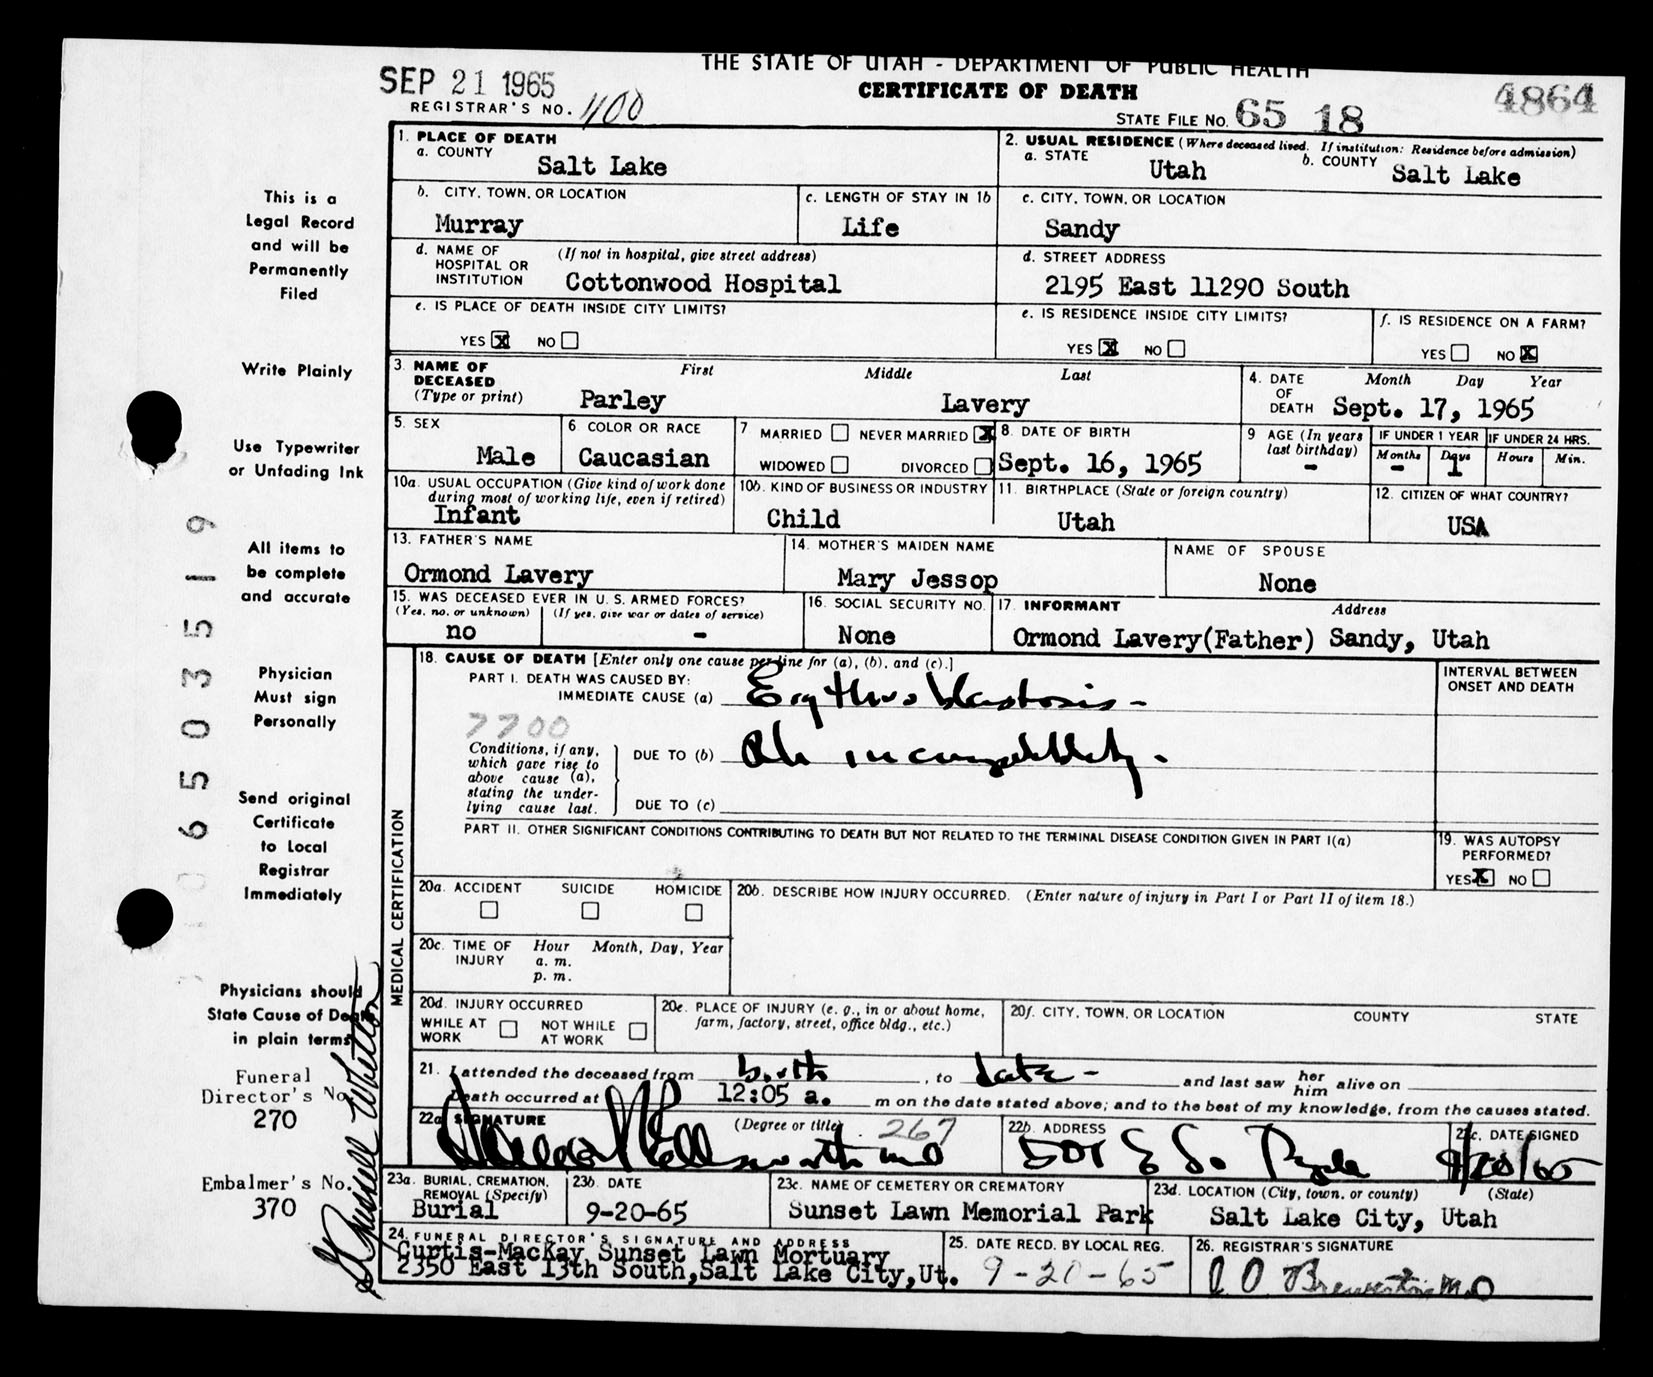 THE STATE OF UTAH - DEPARTMENT OF PUBLIC HEALTH
SEP 21 1965
CERTIFICATE OF DEATH
4864
REGISTRAR'S NO. 1100
STATE FILE NO. 65 18
1. PLACE OF DEATH
a. COUNTY Salt Lake
2. USUAL RESIDENCE (Where deceased lived. If institution: Residence before admission)
a. STATE Utah b. COUNTY Salt Lake
b. CITY, TOWN, OR LOCATION Murray
c. LENGTH OF STAY IN 1b Life
c. CITY, TOWN, OR LOCATION Sandy
d. NAME OF HOSPITAL OR INSTITUTION (If not in hospital, give street address) Cottonwood Hospital
d. STREET ADDRESS 2195 East 11290 South
e. IS PLACE OF DEATH INSIDE CITY LIMITS?
YES X NO
e. IS RESIDENCE INSIDE CITY LIMITS?
YES X NO
f. IS RESIDENCE ON A FARM?
YES NO X
3. NAME OF DECEASED (Type or print) First Middle Last
Parley Lavery
4. DATE OF DEATH Month Day Year
Sept. 17, 1965
5. SEX Male
6 COLOR OR RACE Caucasian
7 MARRIED NEVER MARRIED X
WIDOWED DIVORCED
8. DATE OF BIRTH Sept. 16, 1965
9 AGE (In years last birthday) -
IF UNDER 1 YEAR IF UNDER 24 HRS.
Months Days Hours Min.
- 1
10a. USUAL OCCUPATION (Give kind of work done during most of working life, even if retired) Infant
10b. KIND OF BUSINESS OR INDUSTRY Child
11. BIRTHPLACE (State or foreign country) Utah
12. CITIZEN OF WHAT COUNTRY? USA
13. FATHER'S NAME Ormond Lavery
14. MOTHER'S MAIDEN NAME Mary Jessop
NAME OF SPOUSE None
15. WAS DECEASED EVER IN U.S. ARMED FORCES?
(Yes, no, or unknown) (If yes, give war or dates of service)
no -
16. SOCIAL SECURITY NO. None
17. INFORMANT Address
Ormond Lavery(Father) Sandy, Utah
MEDICAL CERTIFICATION
18. CAUSE OF DEATH [Enter only one cause per line for (a), (b), and (c).]
INTERVAL BETWEEN ONSET AND DEATH
PART I. DEATH WAS CAUSED BY:
IMMEDIATE CAUSE (a) Erythroblastosis -
7700
Conditions, if any, which gave rise to above cause (a), stating the underlying cause last.
DUE TO (b) Rh incompatibility.
DUE TO (c)
PART II. OTHER SIGNIFICANT CONDITIONS CONTRIBUTING TO DEATH BUT NOT RELATED TO THE TERMINAL DISEASE CONDITION GIVEN IN PART I(a)
19. WAS AUTOPSY PERFORMED?
YES X NO
20a. ACCIDENT SUICIDE HOMICIDE
20b. DESCRIBE HOW INJURY OCCURRED. (Enter nature of injury in Part I or Part II of item 18.)
20c. TIME OF INJURY Hour Month, Day, Year
a. m.
p. m.
20d. INJURY OCCURRED
WHILE AT WORK NOT WHILE AT WORK
20e. PLACE OF INJURY (e. g., in or about home, farm, factory, street, office bldg., etc.)
20f. CITY, TOWN, OR LOCATION COUNTY STATE
21. I attended the deceased from birth, to date - and last saw her him alive on
Death occurred at 12:05 a. m on the date stated above; and to the best of my knowledge, from the causes stated.
22a SIGNATURE (Degree or title) 267
Ellsworth MD
22b. ADDRESS 501 E So
22c. DATE SIGNED 9/20/65
23a. BURIAL, CREMATION, REMOVAL (Specify) Burial
23b. DATE 9-20-65
23c. NAME OF CEMETERY OR CREMATORY Sunset Lawn Memorial Park
23d. LOCATION (City, town, or county) (State)
Salt Lake City, Utah
24. FUNERAL DIRECTOR'S SIGNATURE AND ADDRESS
Curtis-MacKay Sunset Lawn Mortuary
2350 East 13th South, Salt Lake City, Ut.
25. DATE RECD. BY LOCAL REG. 9-20-65
26. REGISTRAR'S SIGNATURE
This is a
Legal Record
and will be
Permanently
Filed
Write Plainly
Use Typewriter
or Unfading Ink
All items to
be complete
and accurate
Physician
Must sign
Personally
Send original
Certificate
to Local
Registrar
Immediately
Physicians should
State Cause of Death
in plain terms
Funeral
Director's No.
270
Embalmer's No.
370
0650351 9